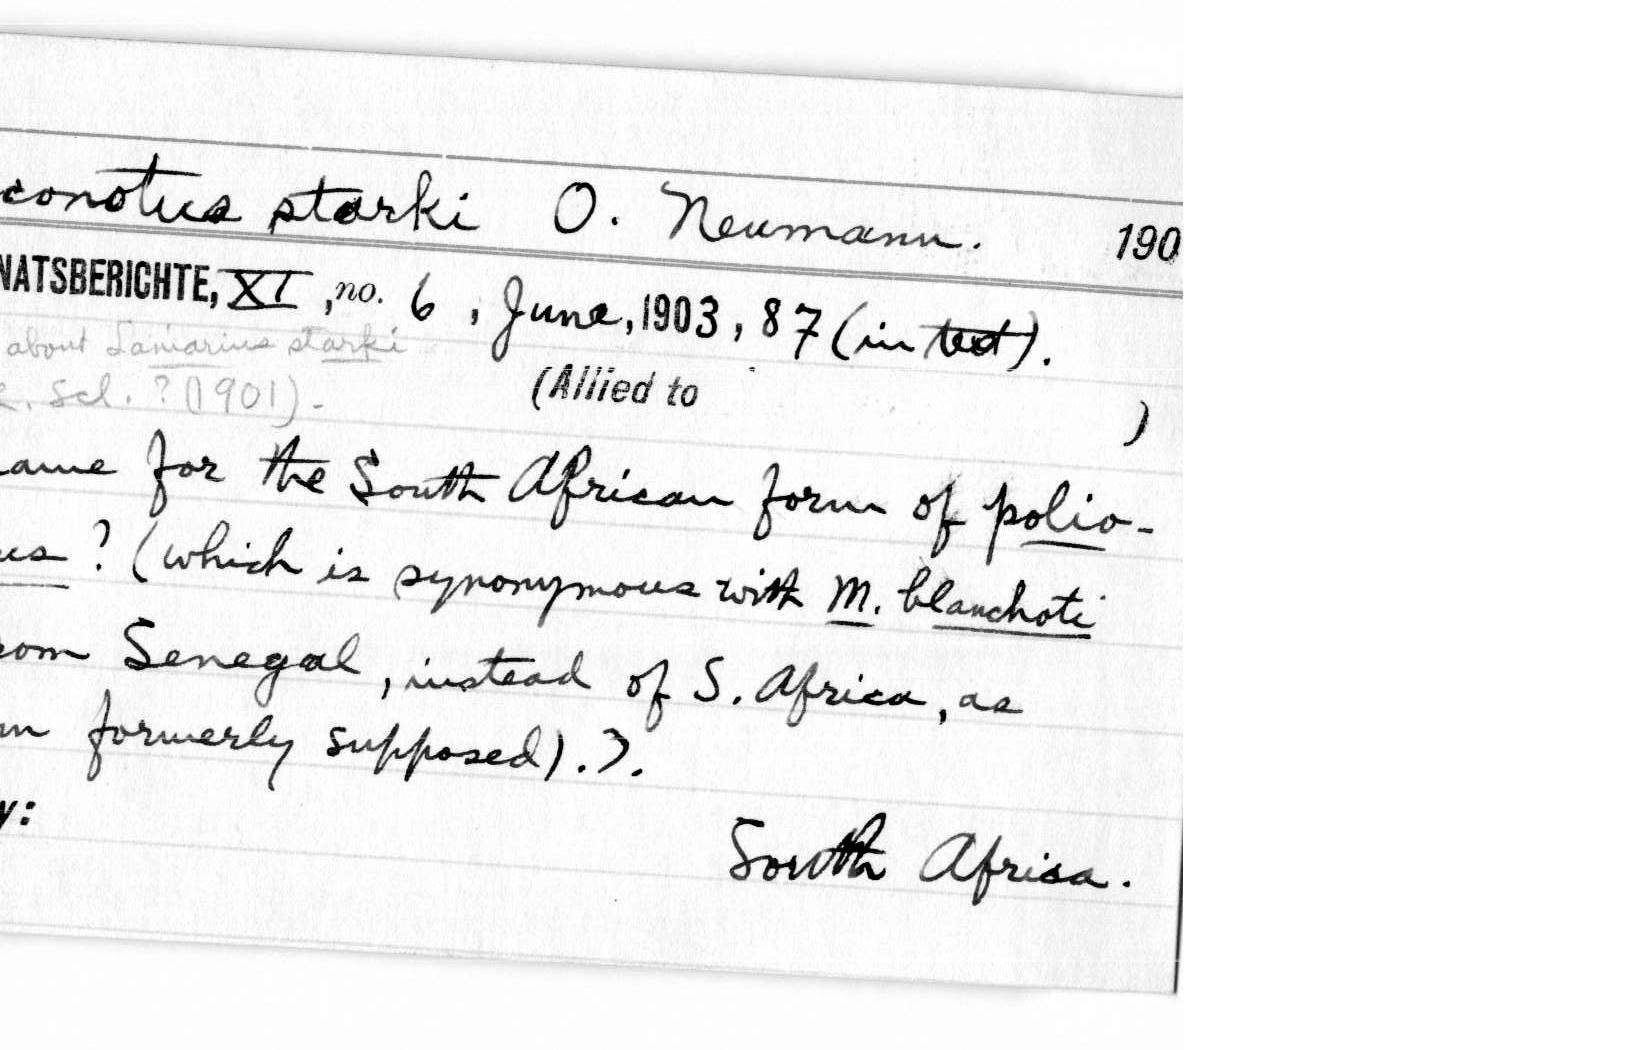 conotus starki O. Neumann. 190
NATSBERICHTE, XI, no. 6, June, 1903, 87 (in text).
about Laniarius starki
Scl. ? (1901).
(Allied to )
ame for the South African form of polio-
us ? (which is synonymous with M. blanchoti
rom Senegal, instead of S. Africa, as
formerly supposed).).
y:
South Africa.